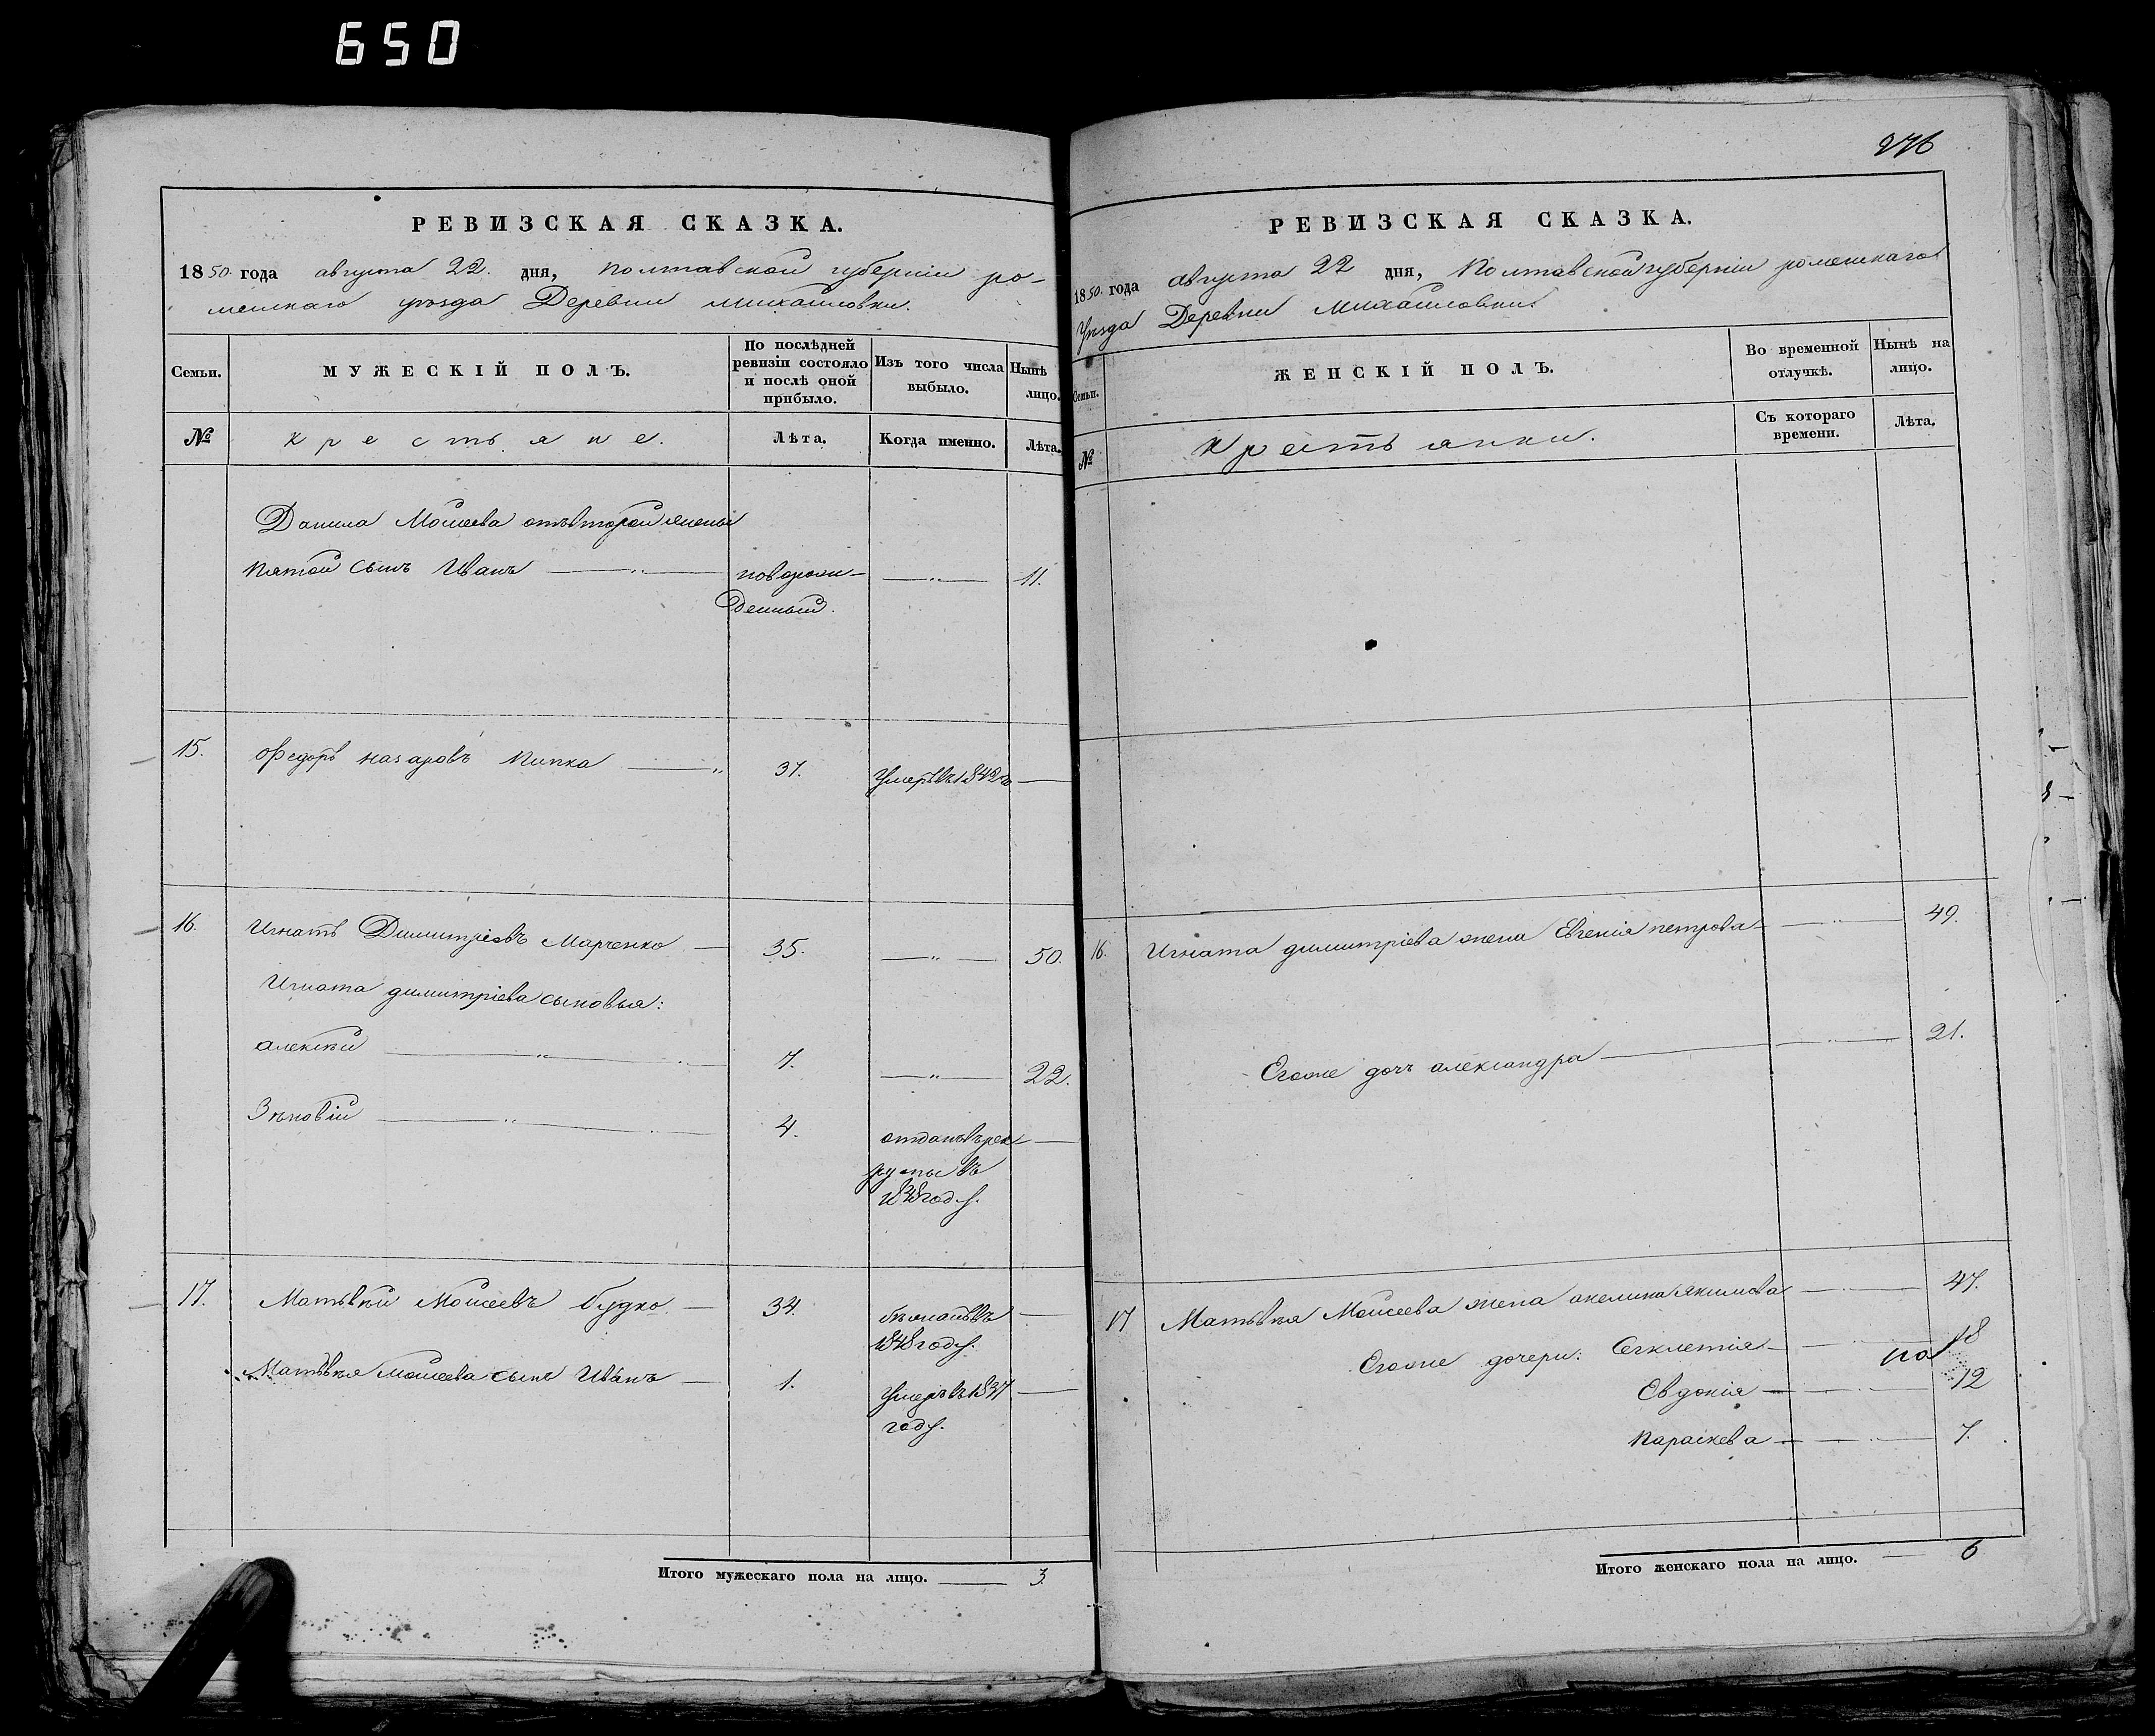 650
РЕВИЗСКАЯ СКАЗКА.
1850. года августа 22. дня, Полтавской губерніи ро-
менскаго уѣзда Деревни Михайловки.
Семьи.
МУЖЕСКІЙ ПОЛЪ.
По послѣдней ревизіи состояло и послѣ оной прибыло.
Изъ того числа выбыло.
Нынѣ лицо.
№
крестьяне.
Лѣта.
Когда именно.
Лѣта.
Данила Моисеева отъ второй жены
пятой сынъ Иванъ — новорож- — 11.
денный.
15. Федоръ назаровъ Пипка — 37. умеръ въ 1842 г —
16. Игнатъ Димитріевъ Марченко — 35. — 50.
Игната димитріева сыновья:
алексѣй — 7. — 22.
Зѣновій — 4. отданъ въ рек —
руты въ
1838 году.
17. Матвѣй Моисеевъ Будко — 34. бѣжалъ въ —
1848 году.
Матвѣя Моисеева сынъ Иванъ — 1. умеръ въ 1837 —
году.
Итого мужескаго пола на лицо. — 3.
276
РЕВИЗСКАЯ СКАЗКА.
1850. года августа 22 дня, Полтавской губерніи роменскаго
уѣзда Деревни Михайловки
Семьи.
ЖЕНСКІЙ ПОЛЪ.
Во временной отлучкѣ.
Нынѣ на лицо.
№
крестьянки.
Съ котораго времени.
Лѣта.
16. Игната димитріева жена Евгенія петрова — 49.
Егоже дочь александра — 21.
17 Матвѣя Моисеева жена акелина Якимова — 47.
Егоже дочери: Секлетія — 18
Евдокія — 12
Параскева — 7.
Итого женскаго пола на лицо. — 6